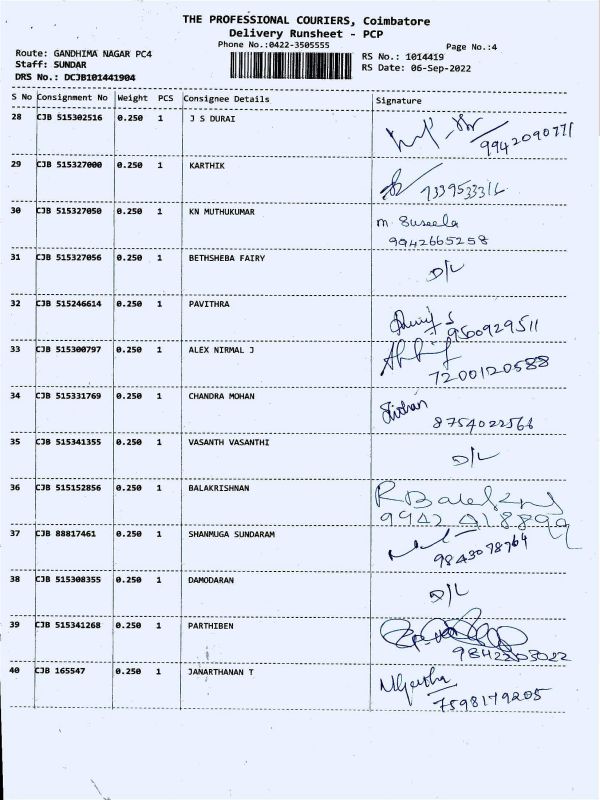 THE PROFESSIONAL COURIERS, Coimbatore
Delivery Runsheet - PCP
Phone No.:0422-3505555
Page No.:4
Route: GANDHIMA NAGAR PC4
RS No.: 1014419
Staff: SUNDAR
RS Date: 06-Sep-2022
DRS No.: DCJB101441904
S No Consignment No Weight PCS Consignee Details Signature
28 CJB 515302516 0.250 1 J S DURAI
9942090771
29 CJB 515327000 0.250 1 KARTHIK
30 CJB 515327050 0.250 1 KN MUTHUKUMAR
m Suseela
9942665258
31 CJB 515327056 0.250 1 BETHSHEBA FAIRY
D/L
32 CJB 515246614 0.250 1 PAVITHRA
9500929511
33 CJB 515300797 0.250 1 ALEX NIRMAL J
7200120588
34 CJB 515331769 0.250 1 CHANDRA MOHAN
8754022566
35 CJB 515341355 0.250 1 VASANTH VASANTHI
D/L
36 CJB 515152856 0.250 1 BALAKRISHNAN
37 CJB 88817461 0.250 1 SHANMUGA SUNDARAM
9843078764
38 CJB 515308355 0.250 1 DAMODARAN
D/L
39 CJB 515341268 0.250 1 PARTHIBEN
9842203022
40 CJB 165547 0.250 1 JANARTHANAN T
7598179205